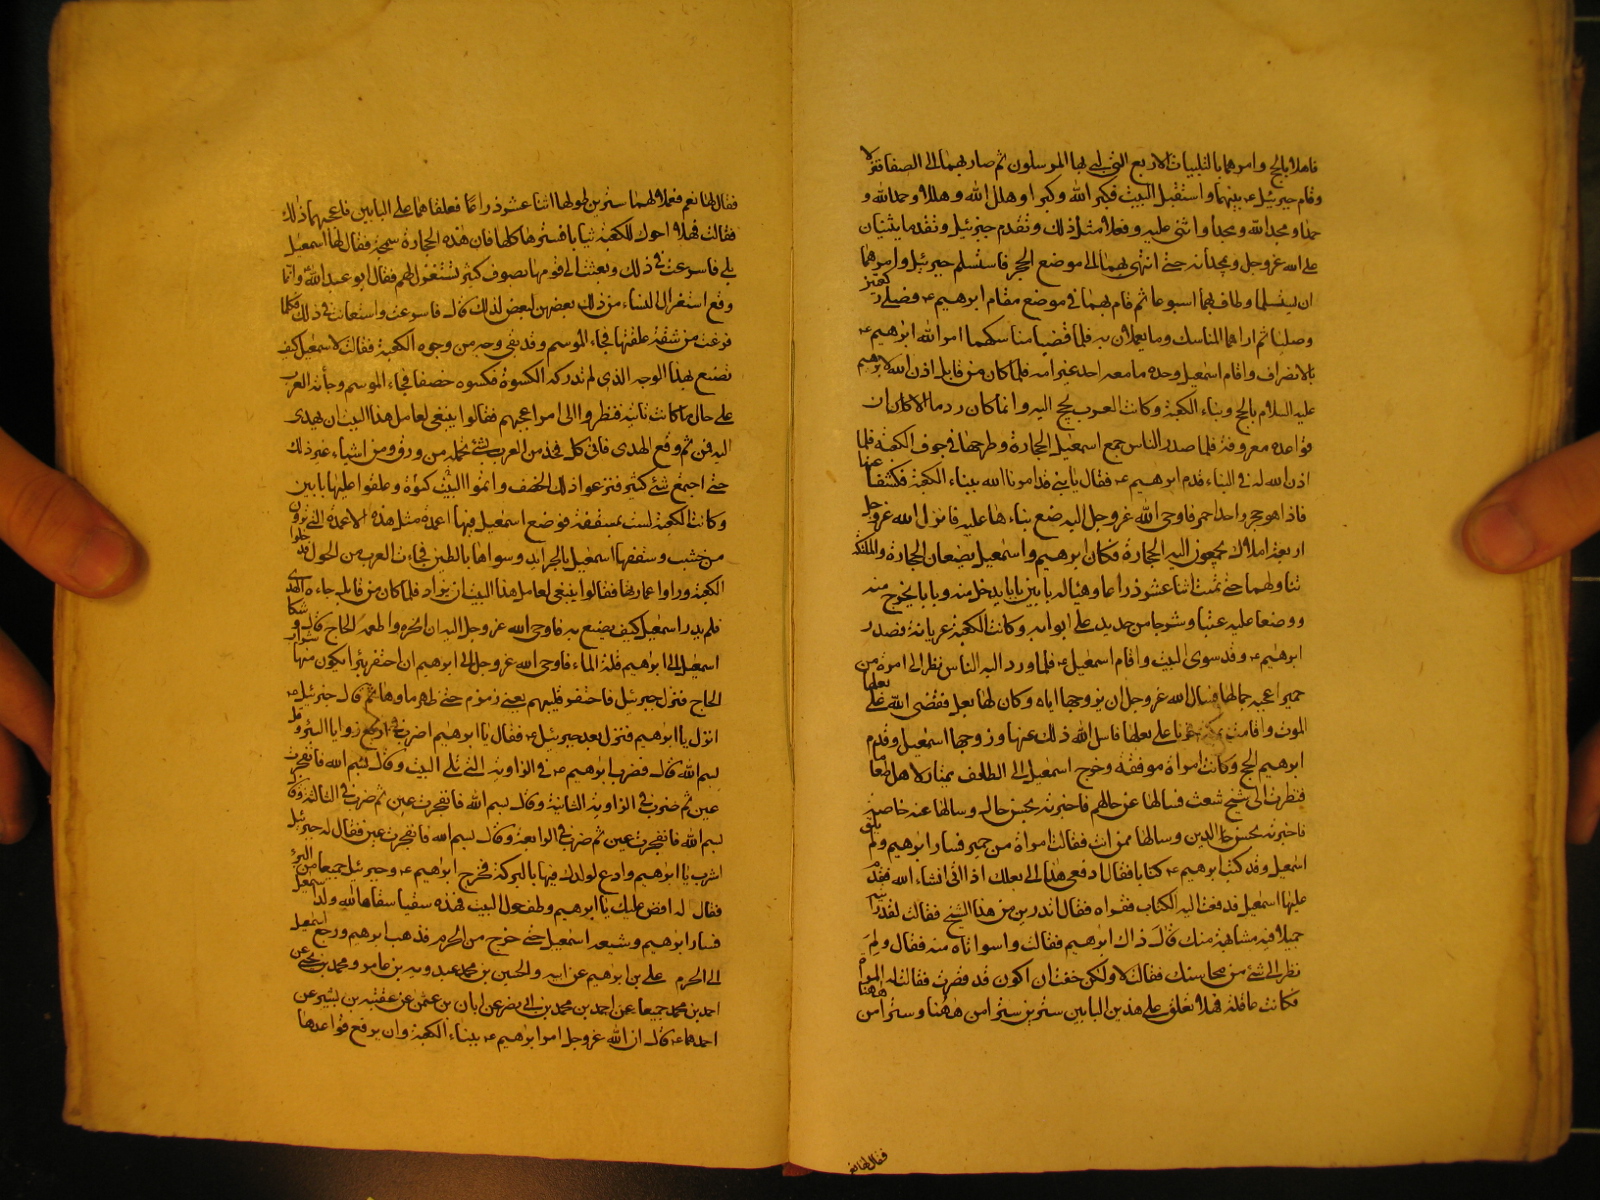 فاهلا بالحج وامرهما بالتلبيات الاربع التي لبى بها المرسلون ثم صار بهما الى الصفا فنزلا
وقام جبرئيل ع بينهما واستقبل البيت فكبر الله وكبرا وهلل الله وهللا وحمد الله و
حمدا ومجد الله ومجدا واثنى عليه وفعلا مثل ذلك وتقدم جبرئيل وتقدما يثنيان
على الله عز وجل ويمجدانه حتى انتهى بهما الى موضع الحجر فاستلم جبرئيل وامرهما
ان يستلما وطاف بهما اسبوعا ثم قام بهما في موضع مقام ابرهيم ع فصلى ركعتين
وصليا ثم اراهما المناسك وما يعملان به فلما قضيا مناسكهما امر الله ابرهيم ع
بالانصراف واقام اسمعيل وحده ما معه احد غير امه فلما كان من قابل اذن الله لابرهيم
عليه السلام بالحج وبناء الكعبة وكانت العرب تحج اليه وانما كان ردما الا ان
قواعده معروفة فلما صدر الناس جمع اسمعيل الحجارة وطرحها في جوف الكعبة فلما
اذن الله له في البناء قدم ابرهيم ع فقال يا بني قد امرنا الله ببناء الكعبة فكشفا عنها
فاذا هو حجر واحد احمر فاوحى الله عز وجل اليه ضع بناءها عليه فانزل الله عز وجل
اربعة املاك يجمعون اليه الحجارة فكان ابرهيم واسمعيل يضعان الحجارة والملئكة
تناولهما حتى تمت اثنا عشر ذراعا وهيا له بابين بابا يدخل منه وبابا يخرج منه
ووضعا عليه عتبا وشرجا من حديد على ابوابه وكانت الكعبة عريانة فصدر
ابرهيم ع وقد سوى البيت واقام اسمعيل ع فلما ورد اليه الناس نظر الى امراة من
حمير اعجبه جمالها فسال الله عز وجل ان يزوجها اياه وكان لها بعل فقضى الله على بعلها
الموت واقامت بمكة حزنا على بعلها فاسل الله ذلك عنها وزوجها اسمعيل وقدم
ابرهيم الحج وكانت امراة موفقة وخرج اسمعيل الى الطائف يمتار لاهله طعاما
فنظرت الى شيخ شعث فسالها عن حالهم فاخبرته بحسن حال وسالها عنه خاصة
فاخبرته بحسن حال الدين وسالها ممن انت فقالت امراة من حمير فسار ابرهيم ولم يلق
اسمعيل وقد كتب ابرهيم ع كتابا فقال ادفعي هذا الى بعلك اذا اتى انشاء الله فقدم
عليها اسمعيل فدفعت اليه الكتاب فقراه فقال اتدرين من هذا الشيخ فقالت لقد رايته
جميلا فيه مشابهة منك قال ذاك ابرهيم فقالت واسوأتاه منه فقال ولم
نظر الى شئ من محاسنك فقالت لا ولكن خفت ان اكون قد قصرت فقالت له المراة
فكانت عاقلة فهلا تعلق على هذين البابين سترين سترا من ههنا وسترا من ههنا
فقال لها نعم
فقال لها نعم فعملا لهما سترين طولهما اثنا عشر ذراعا فعلقاهما على البابين فاعجبهما ذلك
فقالت فهلا احوك للكعبة ثيابا فتسترها كلها فان هذه الحجارة سمجة فقال لها اسمعيل
بلى فاسرعت في ذلك وبعثت الى قومها بصوف كثير تستغزل لهم فقال ابو عبد الله ع وانما
وقع استغزال النساء من ذلك بعضهن لبعض لذلك قال فاسرعت واستعانت في ذلك فكلما
فرغت من شقة علقتها فجاء الموسم وقد بقي وجه من وجوه الكعبة فقالت لاسمعيل كيف
نصنع بهذا الوجه الذي لم تدركه الكسوة فكسوه خصفا فجاء الموسم وجاءته العرب
على حال ما كانت تاتيه فنظروا الى امر اعجبهم فقالوا ينبغي لعامل هذا البيت ان يهدى
اليه فمن ثم وقع الهدى فاتى كل فخذ من العرب بشئ تحمله من ورق ومن اشياء غير ذلك
حتى اجتمع شئ كثير فنزعوا ذلك الخصف واتموا البيت كسوة وعلقوا عليها بابين
وكانت الكعبة ليست بمسقفة فوضع اسمعيل فيها اعمدة مثل هذه الاعمدة التي ترون
من خشب وسقفها اسمعيل بالجرائد وسواها بالطين فجاءت العرب من الحول فدخلوا
الكعبة وراوا عمارتها فقالوا ينبغي لعامل هذا البيت ان يزاد فلما كان من قابل جاءه الهدى
فلم يدر اسمعيل كيف يصنع به فاوحى الله عز وجل اليه ان انحره واطعمه الحاج قال و شكا
اسمعيل الى ابرهيم قلة الماء فاوحى الله عز وجل الى ابرهيم ان احتفر بئرا يكون منها شراب
الحاج فنزل جبرئيل فاحتفر قليبهم يعني زمزم حتى ظهر ماؤها ثم قال جبرئيل ع
انزل يا ابرهيم فنزل بعد جبرئيل ع فقال يا ابرهيم اضرب في اربع زوايا البئر وقل
بسم الله قال فضرب ابرهيم ع في الزاوية التي تلي البيت وقال بسم الله فانفجرت
عين ثم ضرب في الزاوية الثانية وقال بسم الله فانفجرت عين ثم ضرب في الثالثة وقال
بسم الله فانفجرت عين ثم ضرب في الرابعة وقال بسم الله فانفجرت عين فقال له جبرئيل
اشرب يا ابرهيم وادع لولدك فيها بالبركة فخرج ابرهيم ع وجبرئيل جميعا من البئر
فقال له افض عليك يا ابرهيم وطف حول البيت فهذه سقيا سقاها الله ولد اسمعيل
فسار ابرهيم وشيعه اسمعيل حتى خرج من الحرم فذهب ابرهيم ورجع اسمعيل
الى الحرم علي بن ابرهيم عن ابيه والحسين بن محمد عن عبدويه بن عامر ومحمد بن يحيى عن
احمد بن محمد جميعا عن احمد بن محمد بن ابي نصر عن ابان بن عثمن عن عقبة بن بشير عن
احدهما ع قال ان الله عز وجل امر ابرهيم ع ببناء الكعبة وان يرفع قواعدها